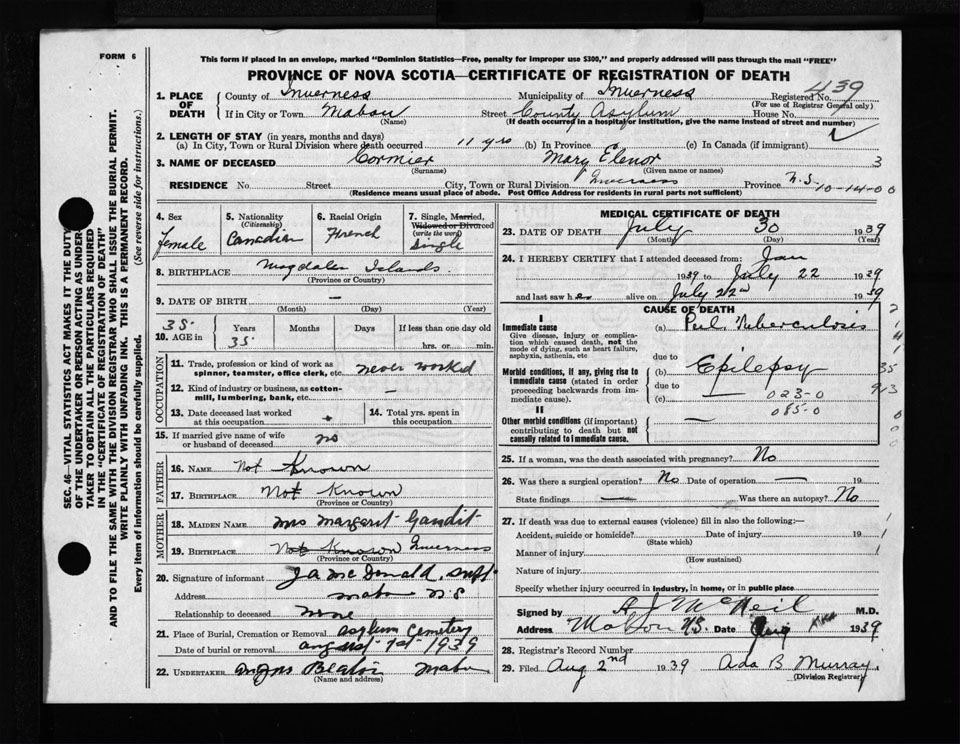 FORM 6
This form if placed in an envelope, marked "Dominion Statistics—Free, penalty for improper use $300," and properly addressed will pass through the mail "FREE"
PROVINCE OF NOVA SCOTIA—CERTIFICATE OF REGISTRATION OF DEATH
439
1. PLACE OF DEATH
County of Inverness Municipality of Inverness Registered No.
(For use of Registrar General only)
If in City or Town Mabou Street County Asylum House No.
(Name) (If death occurred in a hospital or institution, give the name instead of street and number)
2. LENGTH OF STAY (in years, months and days)
(a) In City, Town or Rural Division where death occurred 11 yrs (b) In Province (c) In Canada (if immigrant)
3. NAME OF DECEASED Cormier Mary Elenor 3
(Surname) (Given name or names)
RESIDENCE No. Street City, Town or Rural Division Inverness Province N.S.
(Residence means usual place of abode. Post Office Address for residents in rural parts not sufficient)
10-14-00
SEC. 46—VITAL STATISTICS ACT MAKES IT THE DUTY
OF THE UNDERTAKER OR PERSON ACTING AS UNDER-
TAKER TO OBTAIN ALL THE PARTICULARS REQUIRED
IN THE "CERTIFICATE OF REGISTRATION OF DEATH"
AND TO FILE THE SAME WITH THE DIVISION REGISTRAR WHO SHALL ISSUE THE BURIAL PERMIT.
WRITE PLAINLY WITH UNFADING INK. THIS IS A PERMANENT RECORD.
Every item of information should be carefully supplied. (See reverse side for instructions.)
4. Sex
female
5. Nationality
(Citizenship)
Canadian
6. Racial Origin
French
7. Single, Married,
Widowed or Divorced
(write the word)
Single
8. BIRTHPLACE Magdalen Islands.
(Province or Country)
9. DATE OF BIRTH —
(Month) (Day) (Year)
35
10. AGE in Years Months Days If less than one day old
35 hrs. or min.
OCCUPATION
11. Trade, profession or kind of work as
spinner, teamster, office clerk, etc. never worked
12. Kind of industry or business, as cotton-
mill, lumbering, bank, etc. —
13. Date deceased last worked
at this occupation
14. Total yrs. spent in
this occupation
15. If married give name of wife
or husband of deceased no
FATHER
16. NAME Not Known
17. BIRTHPLACE Not Known
(Province or Country)
MOTHER
18. MAIDEN NAME Mrs Margaret
19. BIRTHPLACE Not Known Inverness
(Province or Country)
20. Signature of informant J A McDonald, Supt
Address Mabou N.S
Relationship to deceased none
21. Place of Burial, Cremation or Removal asylum Cemetery
Date of burial or removal august 1st 1939
22. UNDERTAKER Angus Beaton Mabou
(Name and address)
MEDICAL CERTIFICATE OF DEATH
23. DATE OF DEATH July 30 1939
(Month) (Day) (Year)
24. I HEREBY CERTIFY that I attended deceased from: Jan
1939 to July 22 1939
and last saw her alive on July 22nd 1939
CAUSE OF DEATH
I
Immediate cause
Give disease, injury or complica-
tion which caused death, not the
mode of dying, such as heart failure,
asphyxia, asthenia, etc
(a) Pul. Tuberculosis
due to
Morbid conditions, if any, giving rise to
immediate cause (stated in order
proceeding backwards from im-
mediate cause).
(b) Epilepsy
due to
(c) — 023-0
085-0
II
Other morbid conditions (if important)
contributing to death but not
causally related to immediate cause. —
35
25. If a woman, was the death associated with pregnancy? No
26. Was there a surgical operation? No Date of operation — 19
State findings — Was there an autopsy? No
27. If death was due to external causes (violence) fill in also the following:—
Accident, suicide or homicide? Date of injury 19
(State which)
Manner of injury
(How sustained)
Nature of injury
Specify whether injury occurred in industry, in home, or in public place
Signed by A J McNeil M.D.
Address Mabou N.S. Date Aug 1939
28. Registrar's Record Number
29. Filed Aug 2nd 1939 Ada B Murray.
(Division Registrar)